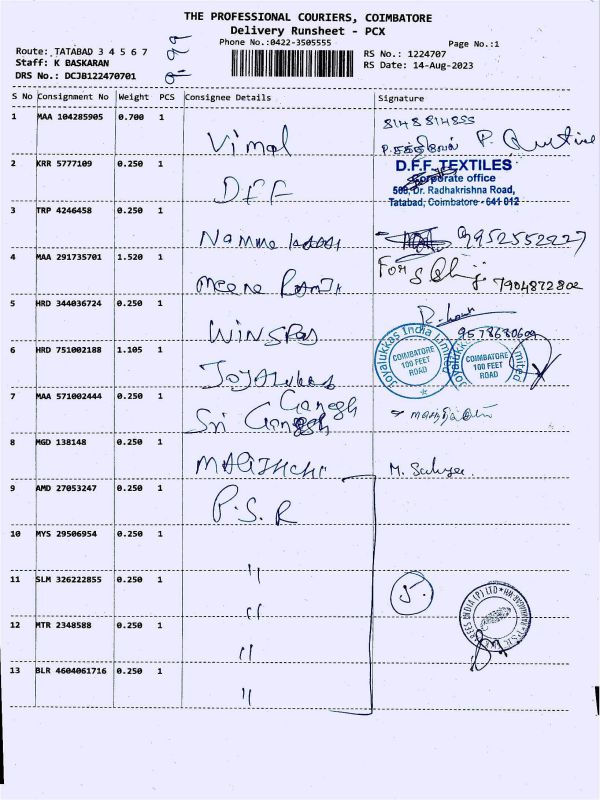 THE PROFESSIONAL COURIERS, COIMBATORE
Delivery Runsheet - PCX
Phone No.:0422-3505555
Page No.:1
Route: TATABAD 3 4 5 6 7
RS No.: 1224707
Staff: K BASKARAN
RS Date: 14-Aug-2023
DRS No.: DCJB122470701
S No Consignment No Weight PCS Consignee Details Signature
1 MAA 104285905 0.700 1 Vimal 8148814855
2 KRR 5777109 0.250 1 DFF
D.F.F. TEXTILES
Corporate office
Dr. Radhakrishna Road,
Tatabad, Coimbatore - 641 012
3 TRP 4246458 0.250 1 Namma 9952552927
4 MAA 291735701 1.520 1 Meena For 7904872802
5 HRD 344036724 0.250 1 WINSPAS 9578680609
6 HRD 751002188 1.105 1 Joyalukkas
Joyalukkas India Limited
COIMBATORE
100 FEET
ROAD
COIMBATORE
100 FEET
ROAD
7 MAA 571002444 0.250 1 Sri Ganesh Ganesh
8 MGD 138148 0.250 1 M.
9 AMD 27053247 0.250 1 P.S.R
10 MYS 29506954 0.250 1 "
11 SLM 326222855 0.250 1 " 5.
12 MTR 2348588 0.250 1 "
13 BLR 4604061716 0.250 1 "